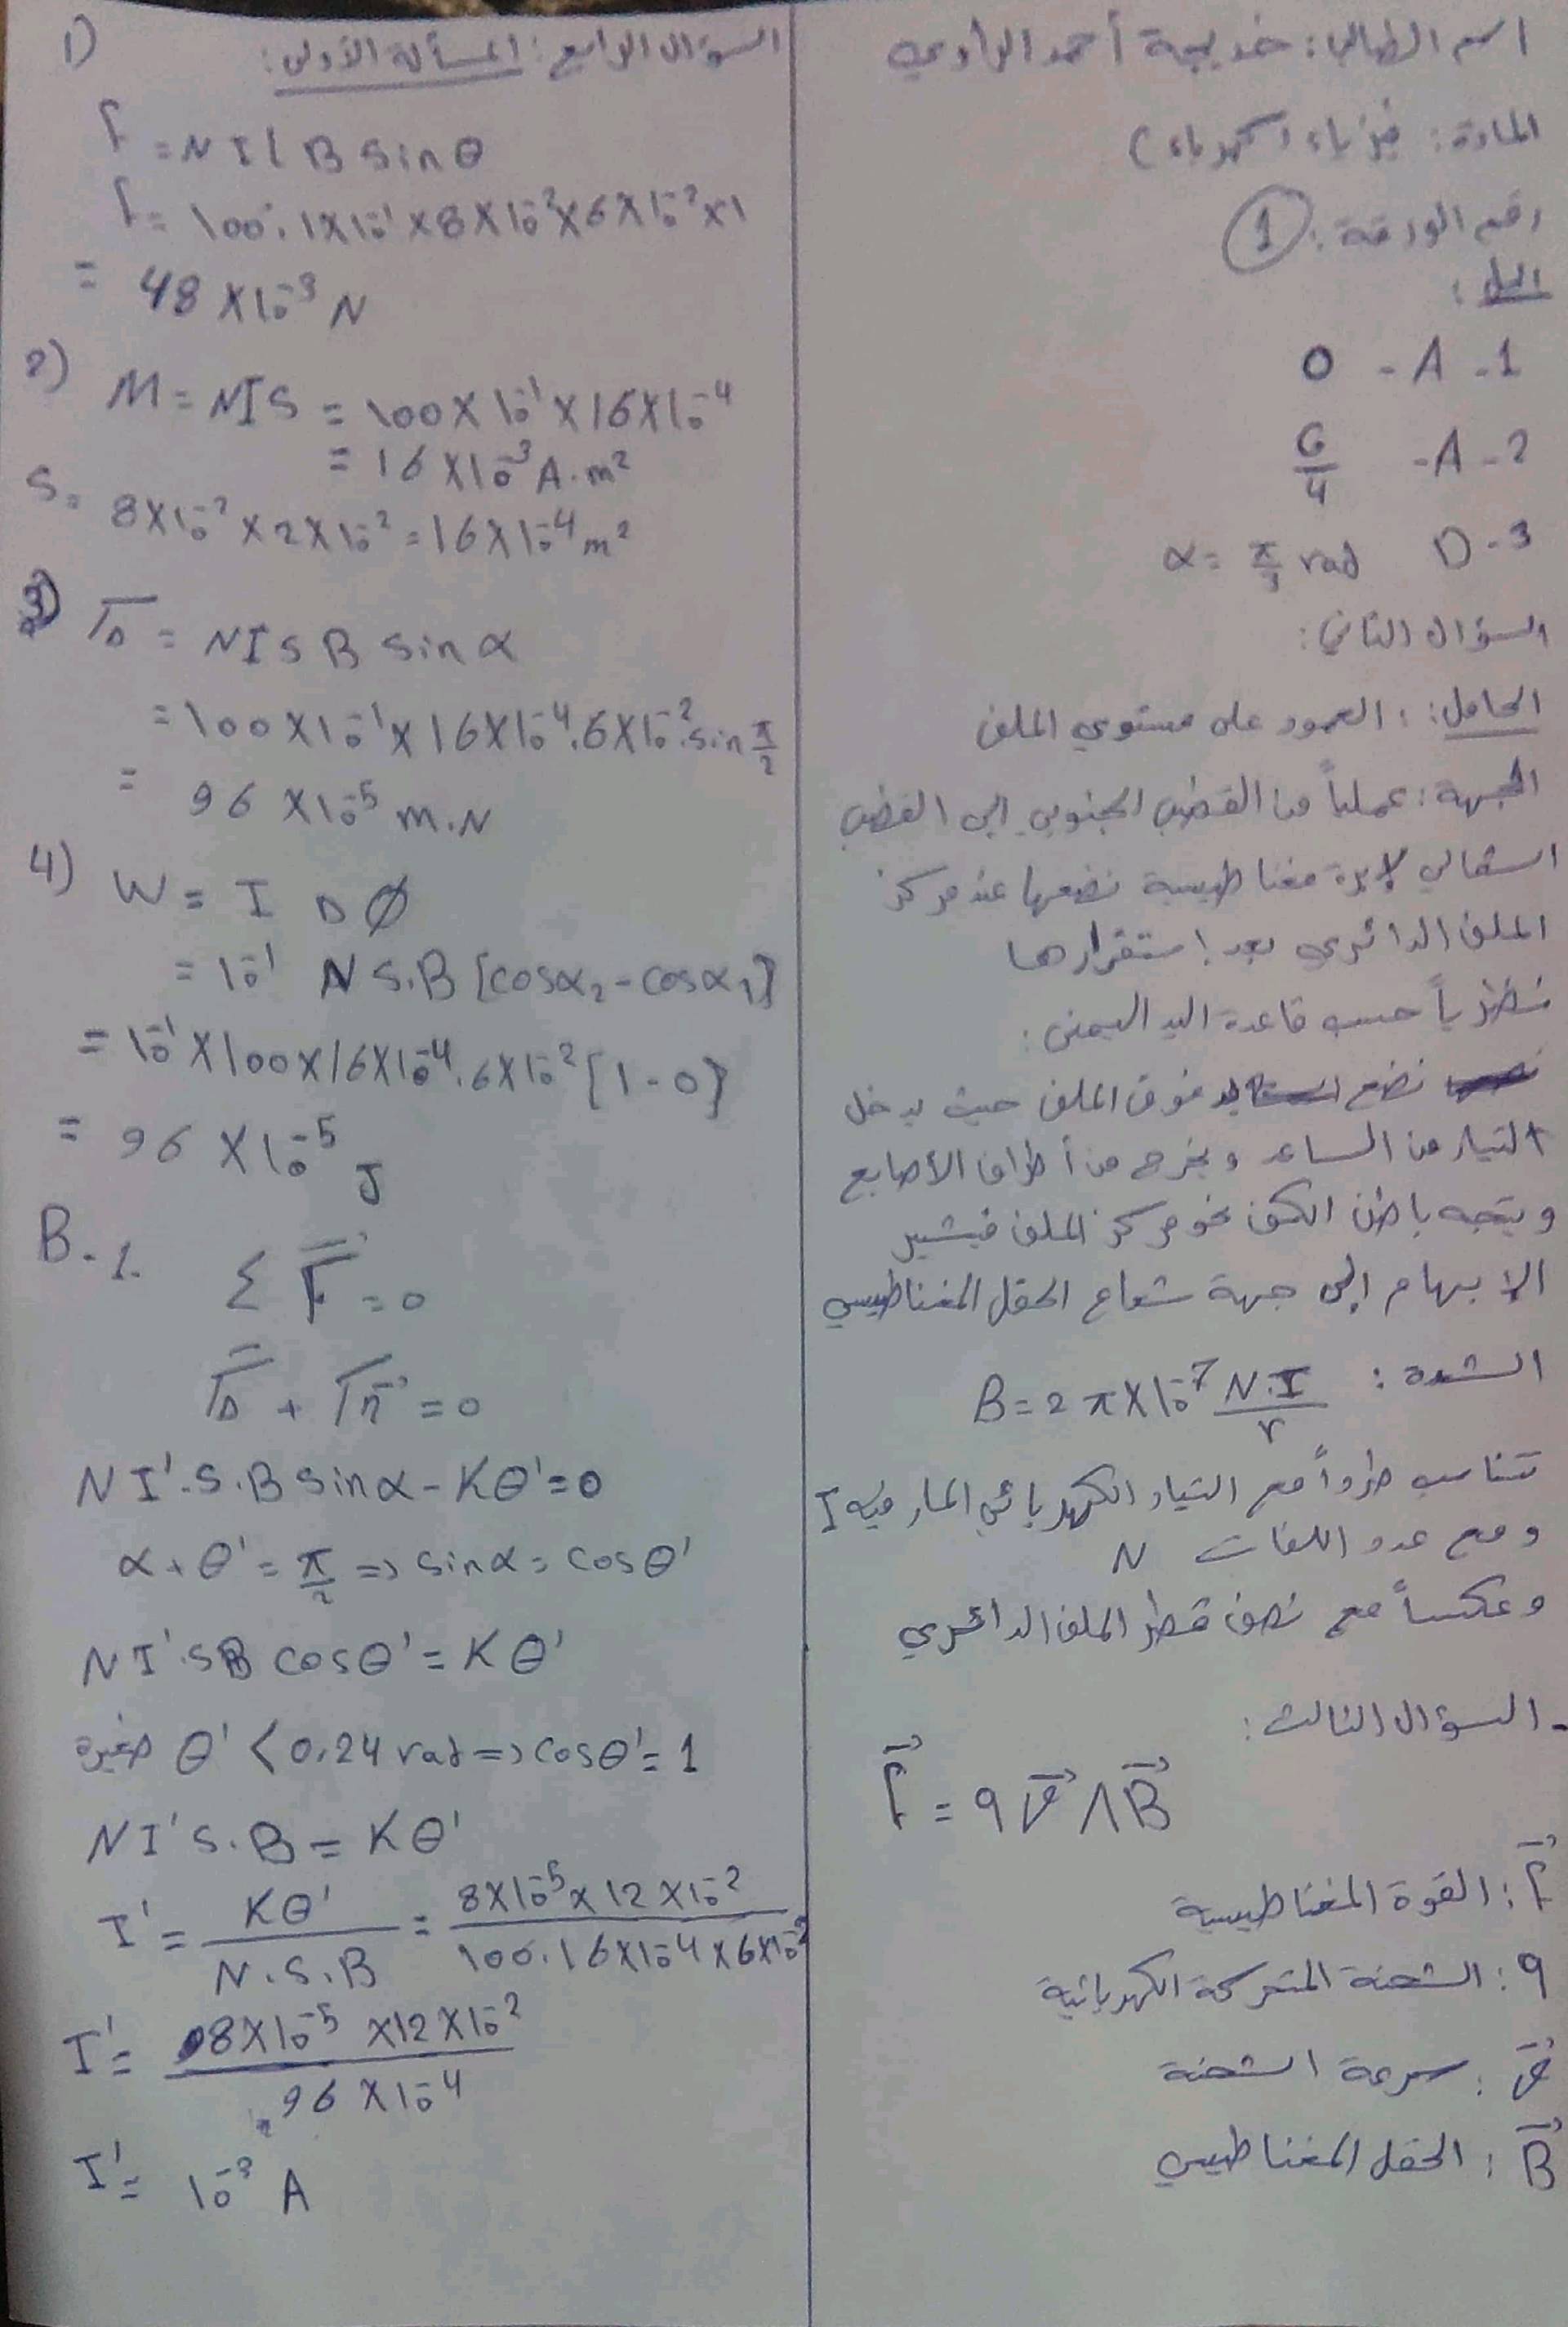 اسم الطالب: خديجة أحمد الراوي
المادة: فيزياء (كهرباء)
رقم الورقة: 1
الحل:
1 - A - 0
2 - A - G/4
3 - D α = π/3 rad
السؤال الثاني:
الحامل: العمود على مستوي الملف
الجهة: عملياً من القطب الجنوبي إلى القطب
الشمالي لإبرة مغناطيسية نضعها عند مركز
الملف الدائري بعد استقرارها
نظرياً حسب قاعدة اليد اليمنى:
نضع اليد فوق الملف حيث يدخل
التيار من الساعد ويخرج من أطراف الأصابع
ويتجه باطن الكف نحو مركز الملف فيشير
الإبهام إلى جهة شعاع الحقل المغناطيسي
الشدة: B = 2π×10⁻⁷ N.I/r
تتناسب طرداً مع التيار الكهربائي المار فيه I
ومع عدد اللفات N
وعكساً مع نصف قطر الملف الدائري
- السؤال الثالث:
f⃗ = q v⃗ ∧ B⃗
f⃗: القوة المغناطيسية
q: الشحنة المتحركة الكهربائية
v⃗: سرعة الشحنة
B⃗: الحقل المغناطيسي
السؤال الرابع: المسألة الأولى:
1)
f = N I L B sin θ
f = 100.1×10⁻¹×8×10⁻²×6×10⁻²×1
= 48×10⁻³ N
2) M = NIS = 100×10⁻¹×16×10⁻⁴
= 16×10⁻³ A.m²
S = 8×10⁻²×2×10⁻² = 16×10⁻⁴ m²
3) Γ̅Δ = N I S B sin α
= 100×10⁻¹×16×10⁻⁴.6×10⁻².sin π/2
= 96×10⁻⁵ m.N
4) W = I Δ Ø
= 10⁻¹ N S.B [cosα₂ - cosα₁]
= 10⁻¹×100×16×10⁻⁴.6×10⁻² [1-0]
= 96×10⁻⁵ J
B.1. Σ Γ̅ = 0
Γ̅Δ + Γ̅η' = 0
N I'.S.B sin α - Kθ' = 0
α + θ' = π/2 => sin α = cos θ'
N I'.S B cos θ' = K θ'
صغيرة θ' < 0.24 rad => cosθ' = 1
N I' S.B = K θ'
I' = Kθ'/N.S.B = 8×10⁻⁵×12×10⁻²/100.16×10⁻⁴×6×10⁻²
I' = 8×10⁻⁵×12×10⁻²/96×10⁻⁴
I' = 10⁻³ A